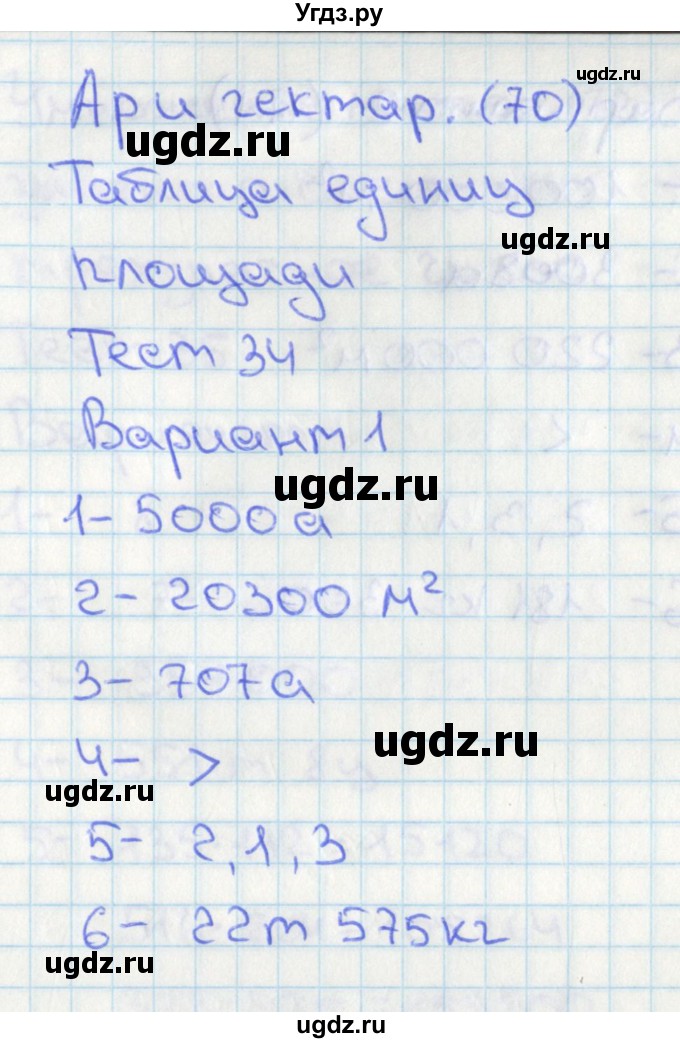 Угдз.ру
ugdz.ru
Ар и гектар. (70)
ugdz.ru
Таблица единиц
ugdz.ru
площади
Тест 34
Вариант 1
ugdz.ru
1- 5000 а
2- 20300 м²
3- 707а
ugdz.ru
4- >
ugdz.ru
5- 2, 1, 3
6- 22т 575кг
ugdz.ru
ugdz.ru
ugdz.ru